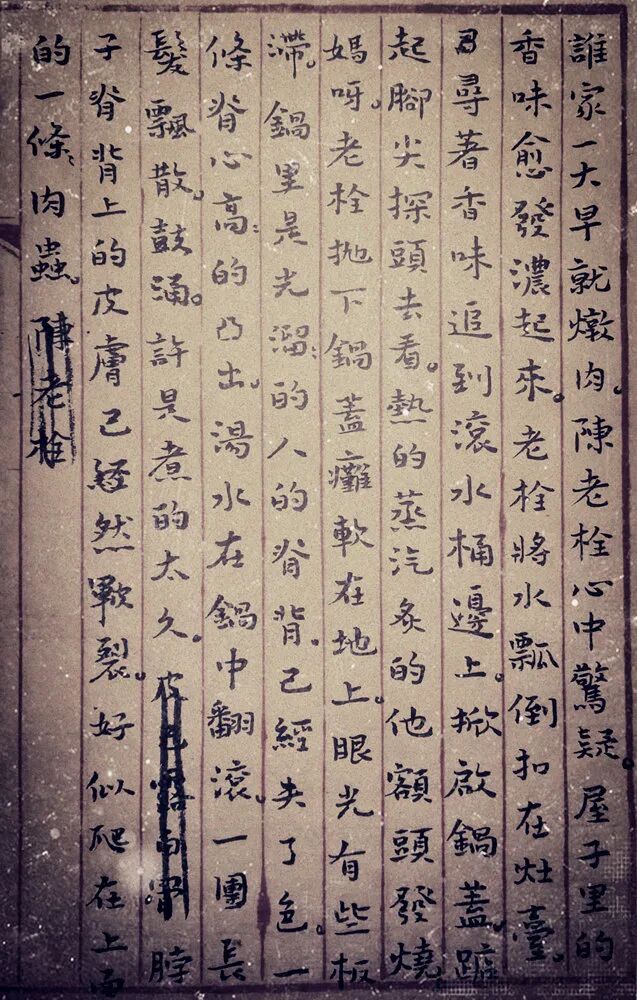 誰家一大早就燉肉。陳老栓心中驚疑。屋子里的
香味愈發濃起來。老栓將水瓢倒扣在灶臺。
尋著香味追到滾水桶邊上。掀啟鍋蓋。踮
起腳尖探頭去看。熱的蒸汽炙的他額頭發燒。
媽呀。老栓拋下鍋蓋癱軟在地上。眼光有些板
滯。鍋里是光溜:的人的脊背。已經失了色。一
條脊心高:的凸出。湯水在鍋中翻滾。一團長
髮飄散。鼓涌。許是煮的太久。脖
子脊背上的皮膚已經然皸裂。好似爬在上面
的一條:肉蟲。陳老栓